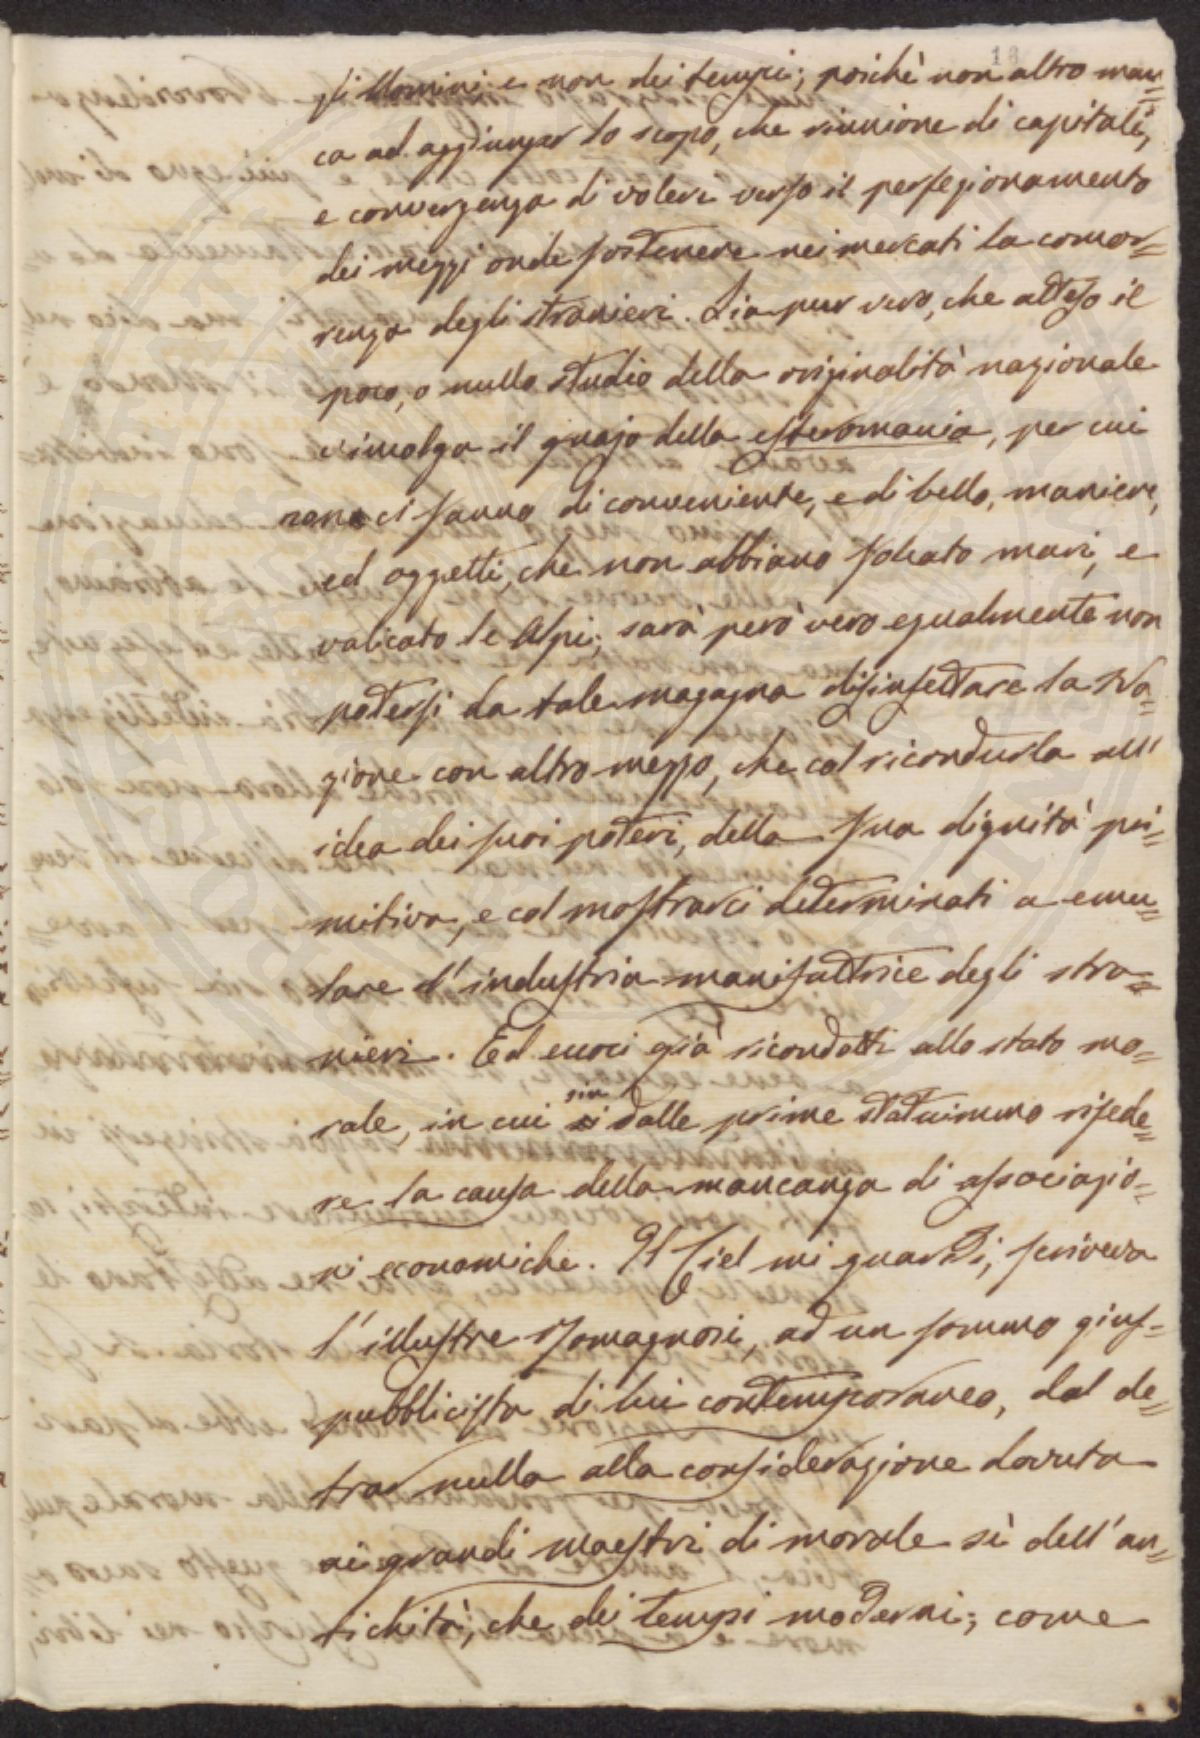 18
gli Uomini e non dei tempi; poichè non altro man=
ca ad aggiunger lo scopo, che riunione di capitali,
e convergenza di voleri verso il perfezionamento
dei mezzi onde sostenere nei mercati la concor=
renza degli stranieri. Sia pur vero, che atteso il
poco, o nullo studio della originalità nazionale
c'involga il guajo della esteromania, per cui
non ci sanno di conveniente, e di bello, maniere,
ed oggetti, che non abbiano solcato mari, e
valicato le Alpi; sarà però vero egualmente non
potersi da tale magagna disinfettare la Na=
zione con altro mezzo, che col ricondurla all'
idea dei suoi poteri, della sua dignità pri=
mitiva, e col mostrarci determinati a emu=
lare l'industria manifattrice degli stra=
nieri. Ed eccoci già ricondotti allo stato mo=
rale, in cui sin dalle prime statuimmo risede=
re la causa della mancanza di associazio=
ni economiche. Il Ciel mi guardi, scriveva
l'illustre Romagnosi, ad un sommo gius=
pubblicista di lui contemporaneo, dal de=
trar nulla alla considerazione dovuta
ai grandi maestri di morale sì dell'an=
tichità, che dei tempi moderni; come